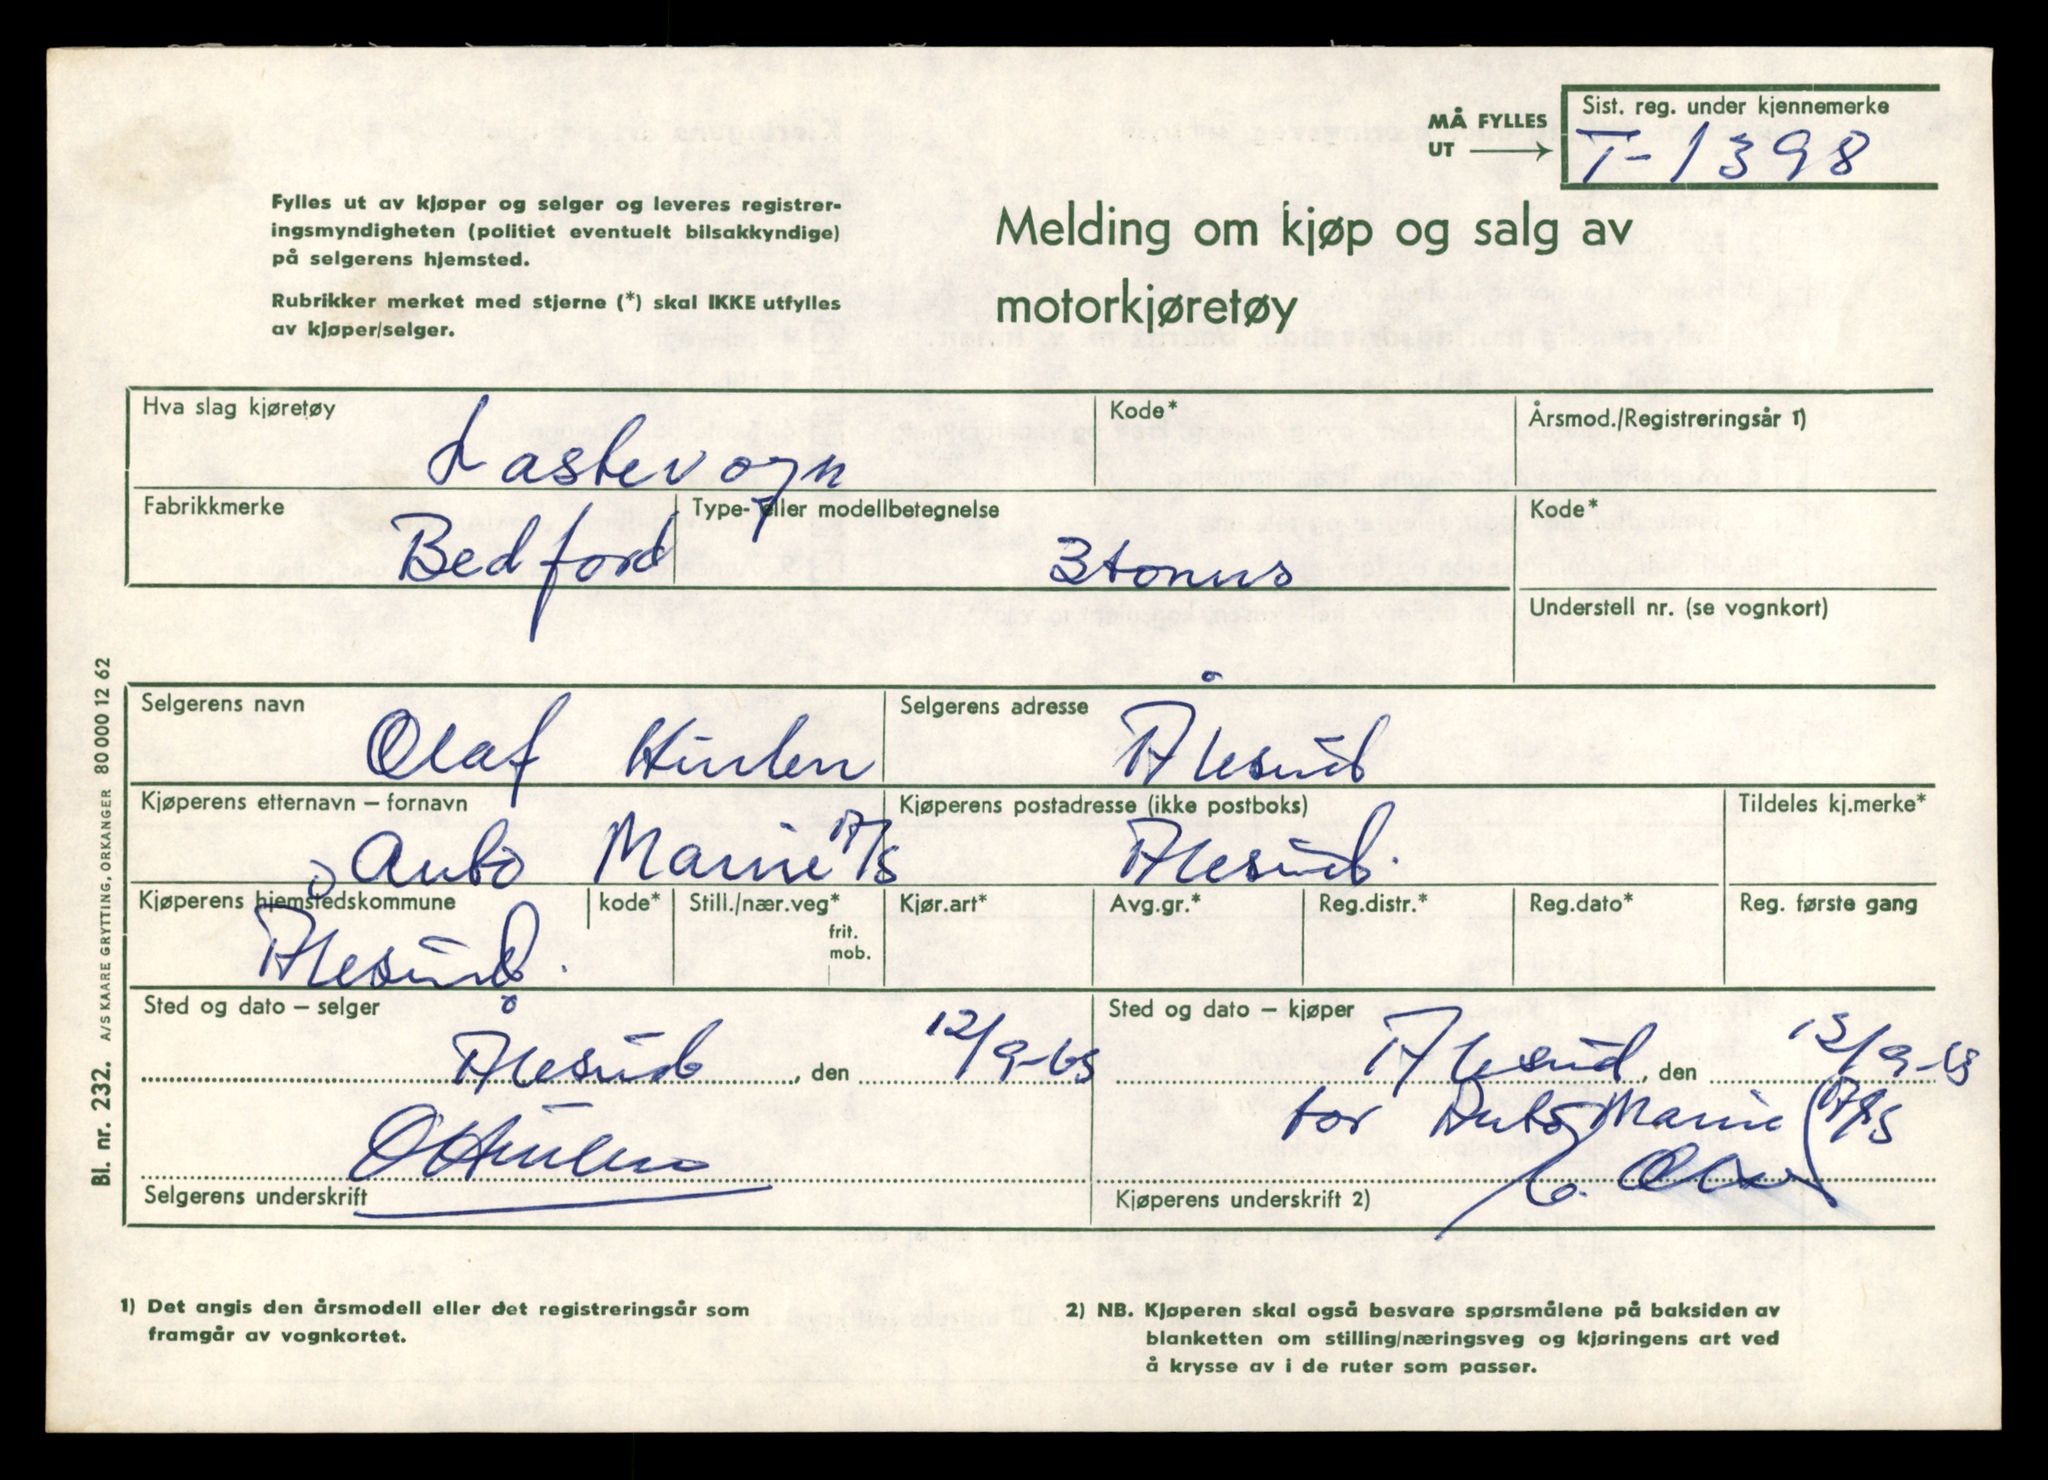 MÅ FYLLES
UT
Sist. reg. under kjennemerke
T-1398
Fylles ut av kjøper og selger og leveres registrer-
ingsmyndigheten (politiet eventuelt bilsakkyndige)
på selgerens hjemsted.
Rubrikker merket med stjerne (*) skal IKKE utfylles
av kjøper/selger.
Melding om kjøp og salg av
motorkjøretøy
Hva slag kjøretøy
Lastevogn
Kode*
Årsmod./Registreringsår 1)
Fabrikkmerke
Bedford
Type- eller modellbetegnelse
3 tonns
Kode*
Understell nr. (se vognkort)
Selgerens navn
Olaf
Selgerens adresse
Ålesund
Kjøperens etternavn – fornavn
Auto Marine A/S
Kjøperens postadresse (ikke postboks)
Ålesund.
Tildeles kj.merke*
Kjøperens hjemstedskommune
Ålesund.
kode*
Still./nær.veg*
frit.
mob.
Kjør.art*
Avg.gr.*
Reg.distr.*
Reg.dato*
Reg. første gang
Sted og dato – selger
Ålesund, den 12/9-65
Selgerens underskrift
Sted og dato – kjøper
Ålesund, den
for Auto Marine A/S
Kjøperens underskrift 2)
1) Det angis den årsmodell eller det registreringsår som
framgår av vognkortet.
2) NB. Kjøperen skal også besvare spørsmålene på baksiden av
blanketten om stilling/næringsveg og kjøringens art ved
å krysse av i de ruter som passer.
Bl. nr. 232. A/S KAARE GRYTTING, ORKANGER 80 000 12 62